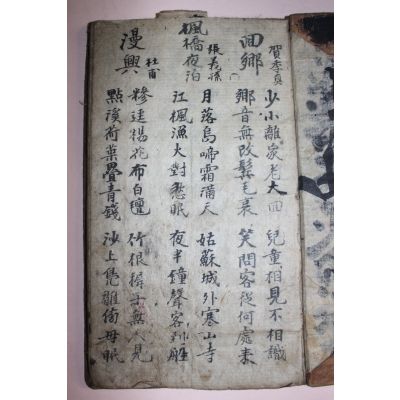 回鄉 賀季真
少小離家老大回 兒童相見不相識
鄉音無改鬢毛衰 笑問客從何處來
楓橋夜泊 張繼
月落烏啼霜滿天 姑蘇城外寒山寺
江楓漁火對愁眠 夜半鐘聲客到船
漫興 杜甫
糝逕楊花布白氈 竹根稚子無人見
點溪荷葉疊青錢 沙上鳧雛傍母眠